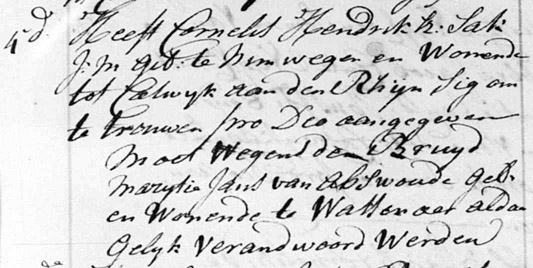 5d. Heeft Cornelis Hendrik k: Sak
J: m geb: te Nimwegen en Wonende
tot Catwyk aan den Rhijn sig om
te trouwen pro Deo aangegeven
moet wegens den Bruyd
marytie Jans van Abswoude geb:
en Wonende te Wassenaer aldaa
gelyk verandwoord werden